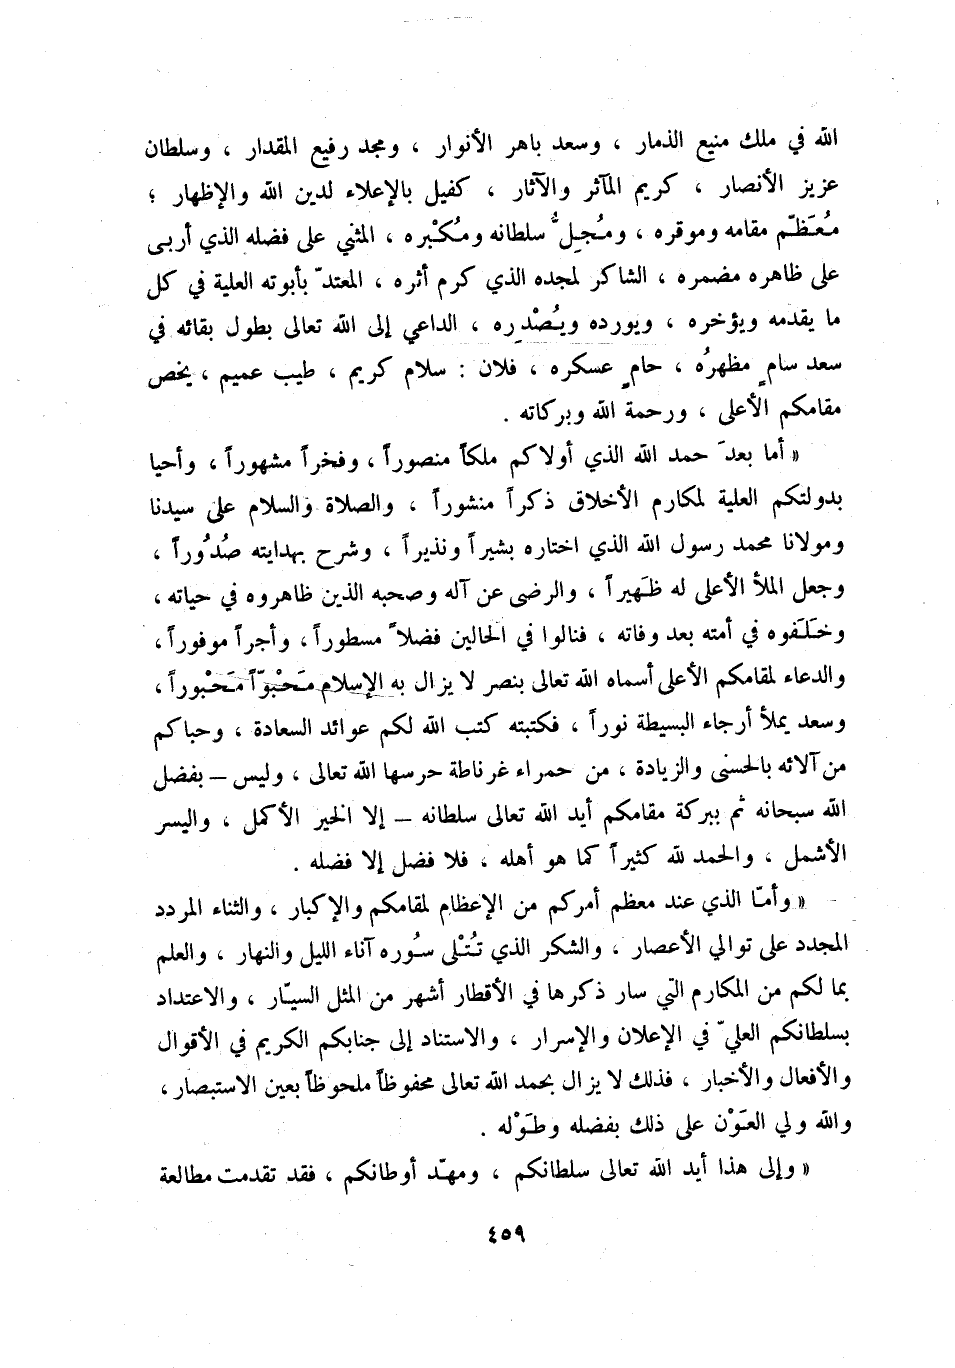 الله في ملك منيع الذمار ، وسعد باهر الأنوار ، ومجد رفيع المقدار ، وسلطان
عزيز الأنصار ، كريم المآثر والآثار ، كفيل بالإعلاء لدين الله والإظهار ؛
مُعَظّم مقامه وموقره ، ومُجِلُّ سلطانه ومُكْبره ، المثني على فضله الذي أربى
على ظاهره مضمره ، الشاكر لمجده الذي كرم أثره ، المعتدّ بأبوته العلية في كل
ما يقدمه ويؤخره ، ويورده ويُصْدِره ، الداعي إلى الله تعالى بطول بقائه في
سعد سامٍ مظهرُه ، حامٍ عسكره ، فلان : سلام كريم ، طيب عميم ، يخص
مقامكم الأعلى ، ورحمة الله وبركاته .
« أما بعدَ حمد الله الذي أولاكم ملكاً منصوراً ، وفخراً مشهوراً ، وأحيا
بدولتكم العلية لمكارم الأخلاق ذكراً منشوراً ، والصلاة والسلام على سيدنا
ومولانا محمد رسول الله الذي اختاره بشيراً ونذيراً ، وشرح بهدايته صُدُوراً ،
وجعل الملأ الأعلى له ظَهيراً ، والرضى عن آله وصحبه الذين ظاهروه في حياته ،
وخَلَفوه في أمته بعد وفاته ، فنالوا في الحالين فضلاً مسطوراً ، وأجراً موفوراً ،
والدعاء لمقامكم الأعلى أسماه الله تعالى بنصر لا يزال به الإسلام مَحْبوّاً مَحْبوراً ،
وسعد يملأ أرجاء البسيطة نوراً ، فكتبته كتب الله لكم عوائد السعادة ، وحباكم
من آلائه بالحسنى والزيادة ، من حمراء غرناطة حرسها الله تعالى ، وليس – بفضل
الله سبحانه ثم ببركة مقامكم أيد الله تعالى سلطانه – إلا الخير الأكمل ، واليسر
الأشمل ، والحمد لله كثيراً كما هو أهله ، فلا فضل إلا فضله .
« وأمّا الذي عند معظم أمركم من الإعظام لمقامكم والإكبار ، والثناء المردد
المجدد على توالي الأعصار ، والشكر الذي تُتْلى سُوره آناء الليل والنهار ، والعلم
بما لكم من المكارم التي سار ذكرها في الأقطار أشهر من المثل السيّار ، والاعتداد
بسلطانكم العليّ في الإعلان والإسرار ، والاستناد إلى جنابكم الكريم في الأقوال
والأفعال والأخبار ، فذلك لا يزال بحمد الله تعالى محفوظاً ملحوظاً بعين الاستبصار ،
والله ولي العَوْن على ذلك بفضله وطَوْله .
« وإلى هذا أيد الله تعالى سلطانكم ، ومهّد أوطانكم ، فقد تقدمت مطالعة
٤٥٩